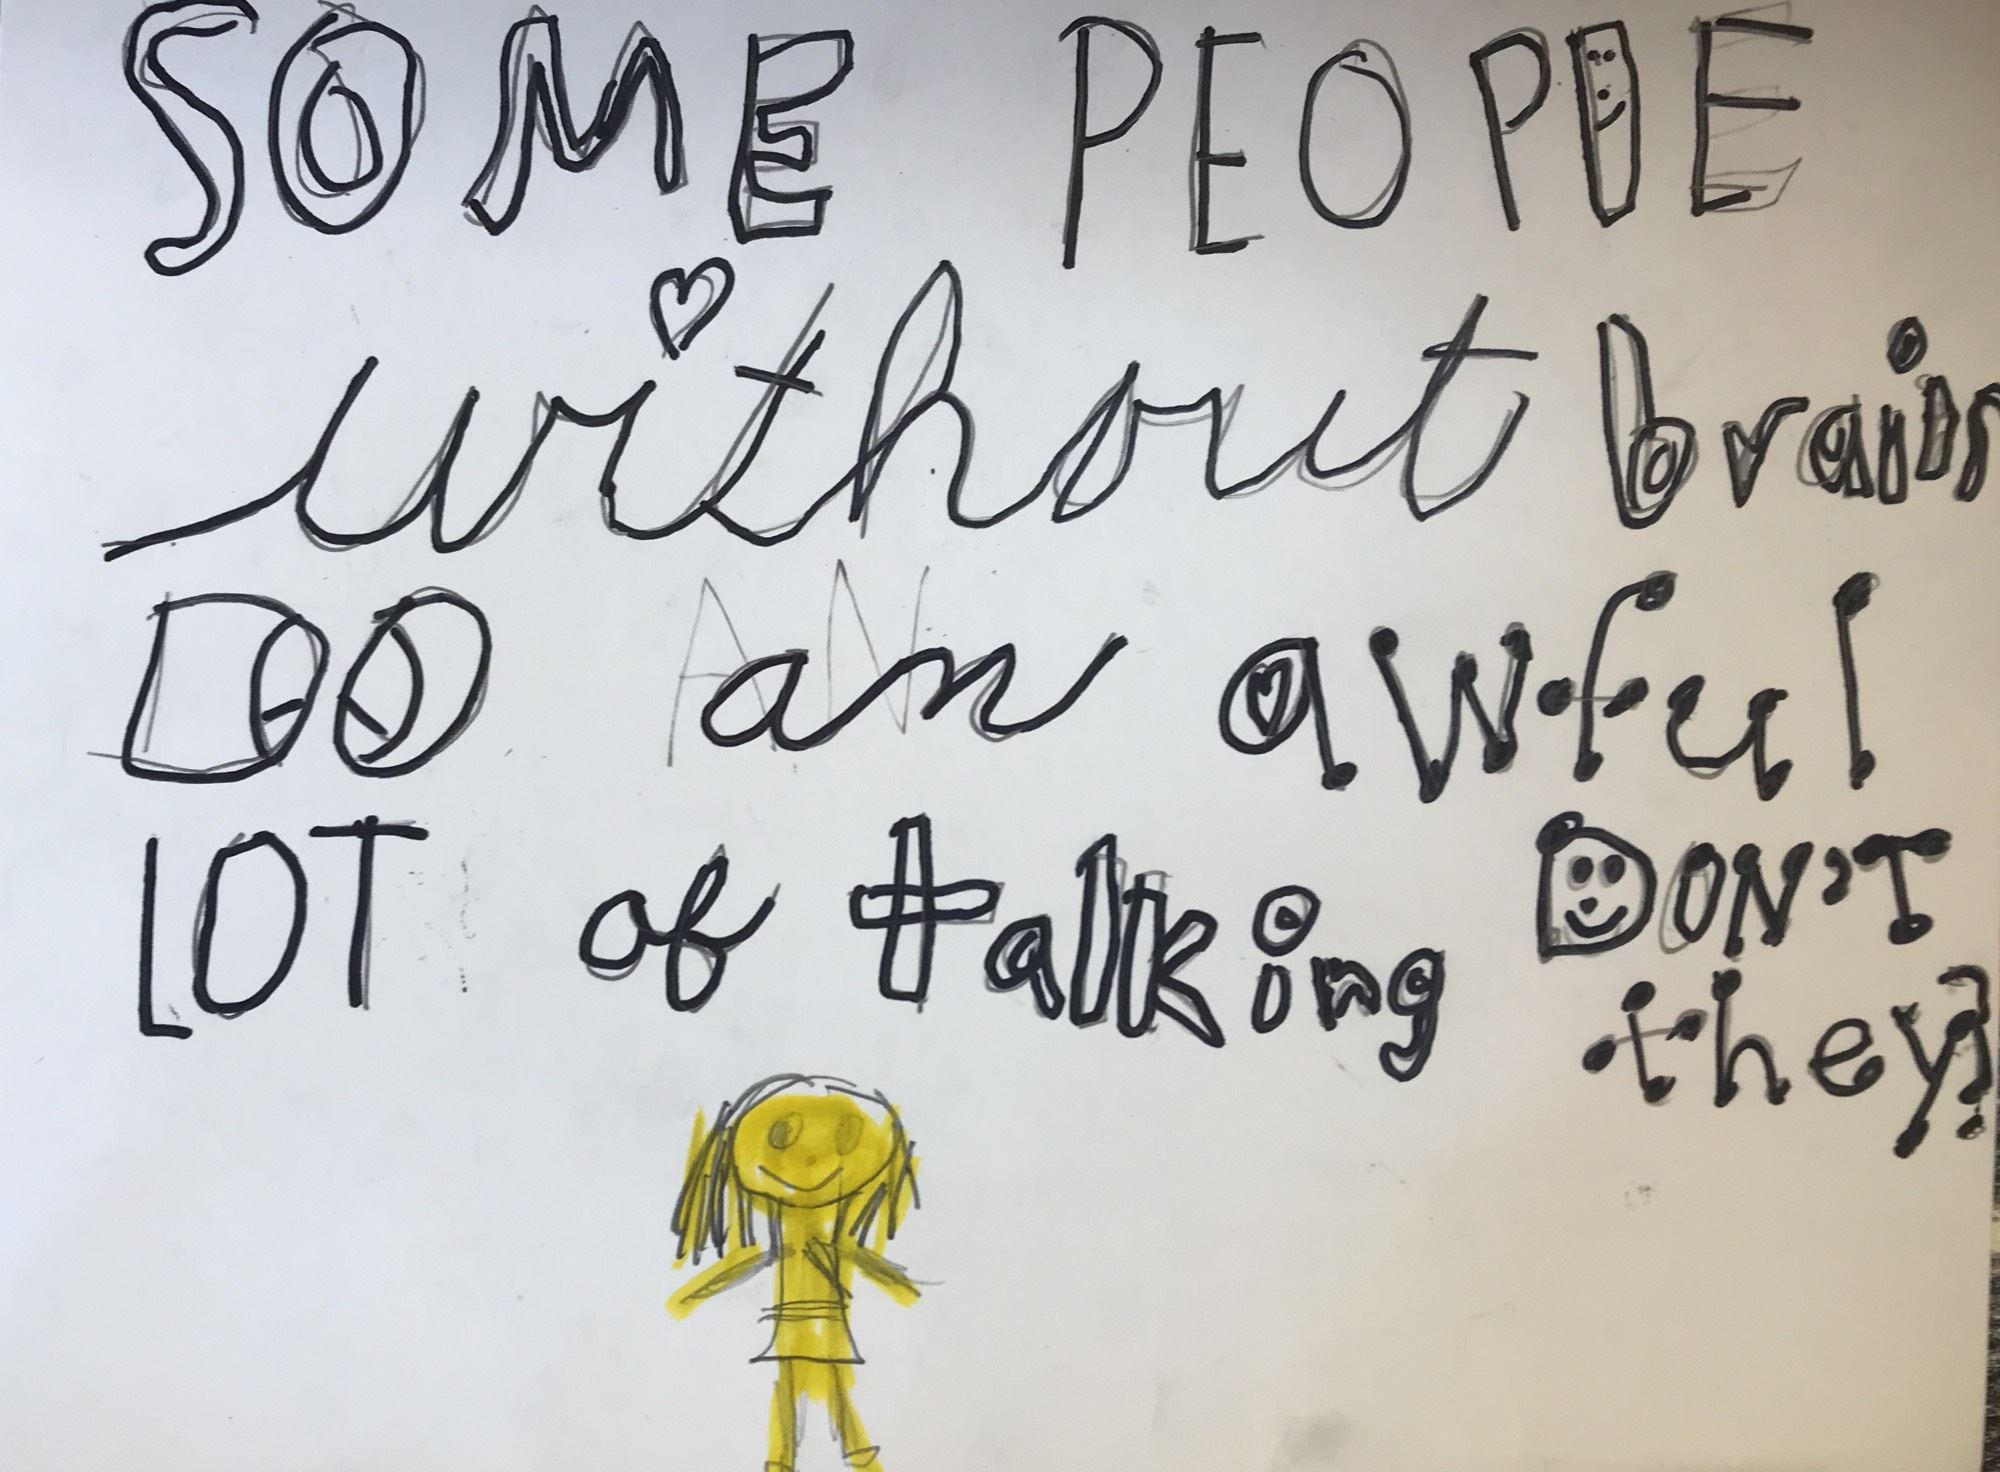 SOME PEOPLE
without brains
DO an awful
LOT of talking DON'T
they?